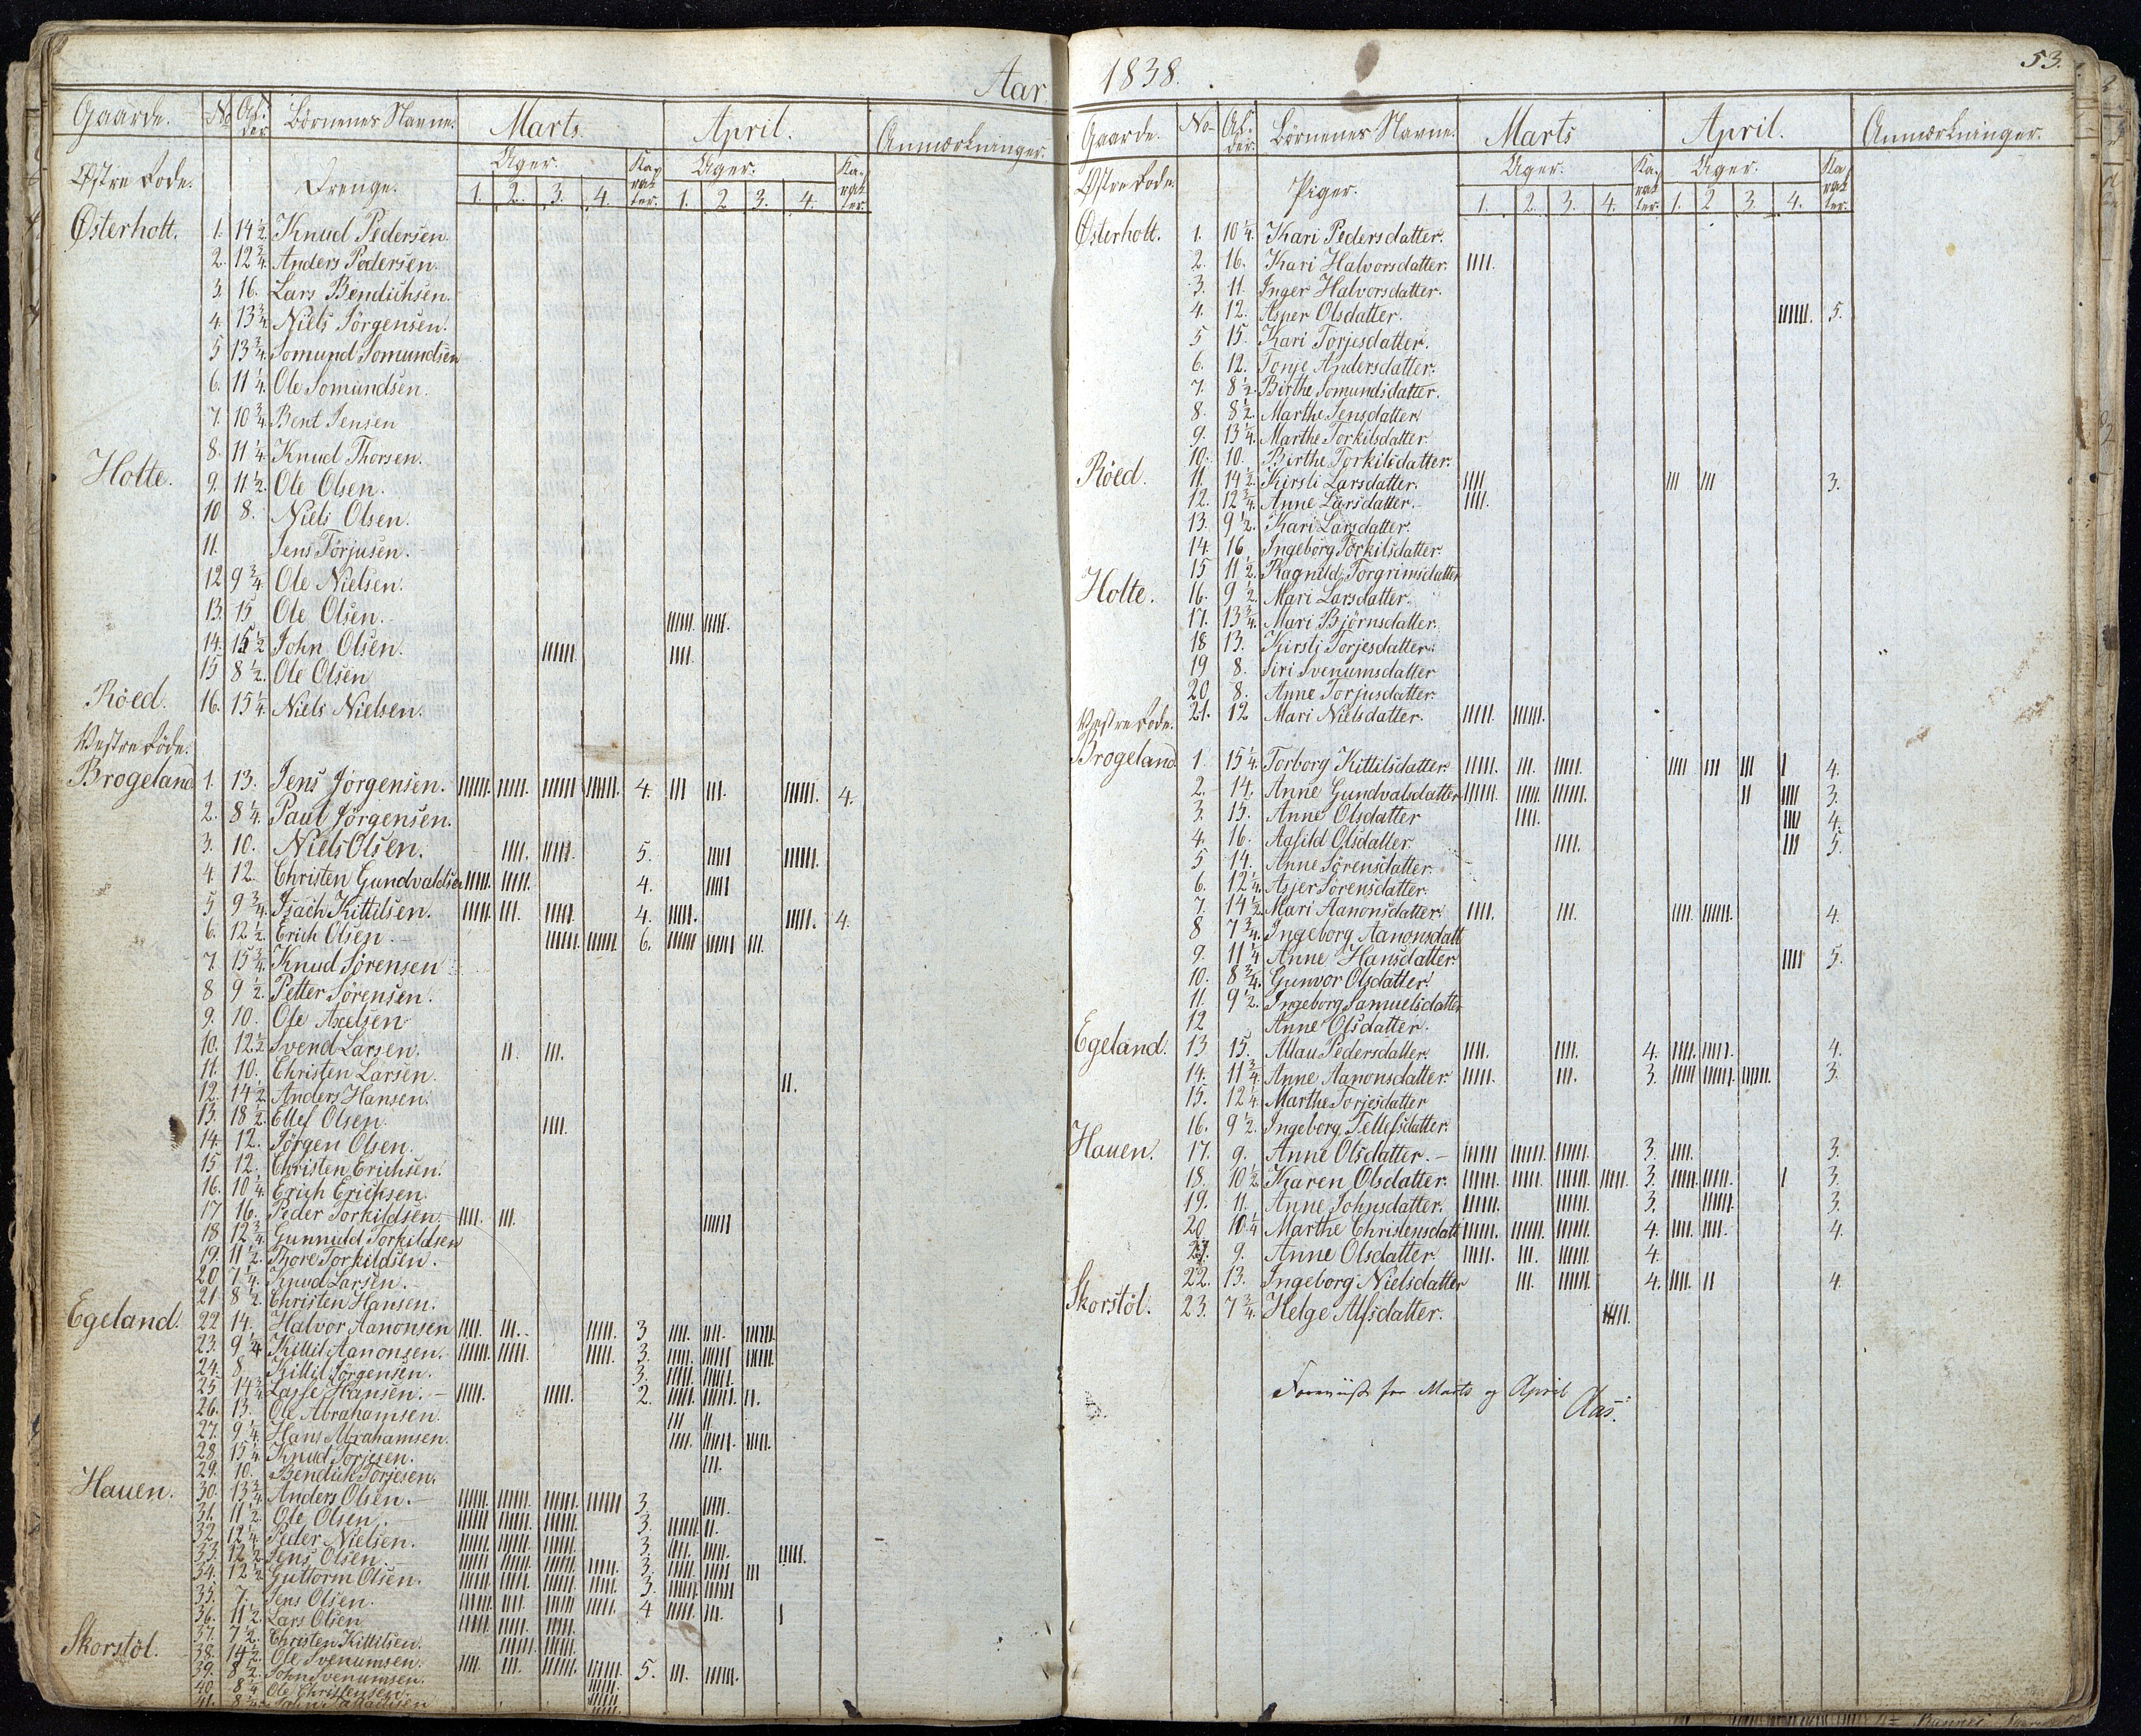 Aar
Gaarde. No Alder Börnenes Navne. Marts. April. Anmærkninger.
Østre Rode. Drenge. Uger. Karakter. Uger. Karakter.
1. 2. 3. 4. 1. 2 3. 4.
Østerholt. 1. 14½ Knud Pedersen.
2. 12¾ Anders Pedersen.
3. 16. Lars Bendichsen.
4. 13¾ Niels Jörgensen.
5 13¾ Somund Somundsen
6. 11¼ Ole Somundsen.
7. 10¾ Bent Jensen
8. 11¼ Knud Thorsen.
Holte. 9. 11½ Ole Olsen.
10 8. Niels Olsen.
11. Jens Torjusen.
12 9¾ Ole Nielsen.
13. 15 Ole Olsen.
14. 15½ John Olsen.
15 8½ Ole Olsen
Röed. 16. 15¼ Niels Nielsen.
Vestre Rode.
Brogeland 1. 13. Jens Jörgensen. 4. 4.
2. 8¼ Paul Jörgensen.
3. 10. Niels Olsen. 5.
4. 12. Christen Gundvaldsen 4.
5 9¾ Isach Kittilsen. 4. 4.
6. 12½ Erich Olsen. 6.
7. 15¾ Knud Sörensen
8 9½ Petter Sörensen.
9. 10. Ole Axelsen
10. 12½ Svend Larsen.
11. 10. Christen Larsen.
12. 14½ Anders Hansen.
13. 18½ Ellef Olsen.
14. 12. Jörgen Olsen.
15 12. Christen Erichsen.
16. 10¼ Erich Erichsen.
17 16. Peder Torkildsen.
18 12¾ Gunnuld Torkildsen
19. 11½ Thore Torkildsen.
20 7¼ Knud Larsen.
21 8½ Christen Hansen.
Egeland. 22 14. Halvor Aanonsen 3
23. 9¼ Kittil Aanonsen. 3.
24. 8. Kittil Jörgensen. 3.
25 14¾ Lasse Hansen. 2.
26. 13. Ole Abrahamsen.
27. 9¼ Hans Abrahamsen.
28. 15¼ Knud Torjesen.
29. 10. Bendich Torjesen.
Hauen. 30. 13¾ Anders Olsen. 3.
31. 11½ Ole Olsen. 3.
32. 12¼ Peder Nielsen. 3.
33. 12½ Jens Olsen. 3.
34. 12½ Guttorm Olsen. 3.
35. 7. Jens Olsen. 4
36. 11½ Lars Olsen
37. 7½ Christen Kittilsen.
Skorstöl. 38. 14½ Ole Svenumsen.
39. 8½ John Svenumsen. 5.
40. 8¼ Ole Christensen.
41. 8¼
1838.
53.
Gaarde. No Alder. Börnenes Navne. Marts April. Anmærkninger.
Østre Rode. Piger. Uger. Karakter. Uger. Karakter.
1. 2. 3. 4. 1. 2 3. 4.
Østerholt. 1. 10¼ Kari Pedersdatter.
2. 16. Kari Halvorsdatter.
3. 11. Inger Halvorsdatter.
4. 12. Asper Olsdatter. 5.
5 15. Kari Torjesdatter.
6. 12. Tonje Andersdatter.
7. 8½ Birthe Somundsdatter.
8. 8½ Marthe Jensdatter
9. 13¼ Marthe Torkilsdatter
10. 10. Birthe Torkilsdatter.
Röed. 11. 14½ Kirsti Larsdatter. 3.
12. 12¾ Anne Larsdatter.
13. 9½ Kari Larsdatter.
14. 16 Ingeborg Torkilsdatter.
15 11½ Ragnild Torgrimsdatter
Holte. 16. 9½ Mari Larsdatter.
17. 13¾ Mari Björnsdatter.
18 13. Kirsti Torjesdatter.
19 8. Siri Svenumsdatter
20 8. Anne Torjusdatter.
21. 12 Mari Nielsdatter.
Vestre Rode.
Brogeland 1. 15¼ Torborg Kittilsdatter. 4.
2. 14. Anne Gundvalsdatter 3.
3. 15. Anne Olsdatter 4.
4. 16. Aasild Olsdatter 5.
5 14. Anne Sörensdatter.
6. 12¼ Asjer Sörensdatter.
7. 14½ Mari Aanonsdatter. 4.
8 7¾ Ingeborg Aanonsdatt
9. 11¼ Anne Hansdatter. 5.
10. 8¾ Gunvor Olsdatter.
11. 9½ Ingeborg Samuelsdatter
12 Anne Olsdatter.
Egeland. 13 15. Allau Pedersdatter. 4. 4.
14. 11¾ Anne Aanonsdatter. 3. 3.
15. 12¼ Marthe Torjesdatter
16. 9½ Ingeborg Tellefsdatter.
Hauen. 17. 9. Anne Olsdatter. 3. 3.
18. 10½ Karen Olsdatter. 3. 3.
19. 11. Anne Johnsdatter. 3. 3.
20 10¼ Marthe Christensdatt 4. 4.
21. 9. Anne Olsdatter 4.
22. 13. Ingeborg Nielsdatter 4. 4.
Skorstöl. 23. 7¾ Helge Alfsdatter.
Foreviist for Marts og April
Aas.